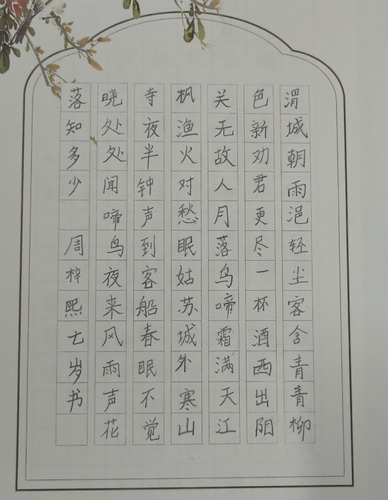 渭城朝雨浥轻尘客舍青青柳
色新劝君更尽一杯酒西出阳
关无故人月落乌啼霜满天江
枫渔火对愁眠姑苏城外寒山
寺夜半钟声到客船春眠不觉
晓处处闻啼鸟夜来风雨声花
落知多少 周梓熙七岁书